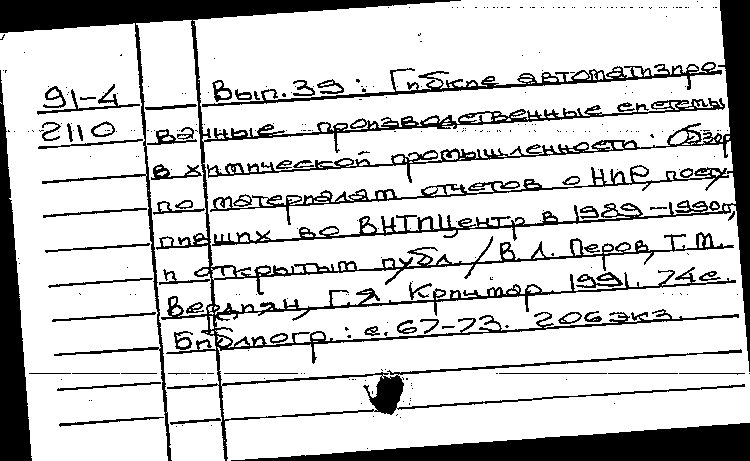 91-4 Вып. 39: Гибкие автоматизиро-
2110 ванные производственные системы
в химической промышленности: Обзор
по материалам отчетов о НИР, посту-
пивших во ВНТИЦентр в 1989-1990гг,
и открытым публ. / В. Л. Перов, Т. М.
Г. Я. 1991. 74с.
Библиогр.: с. 67-73. 206 экз.